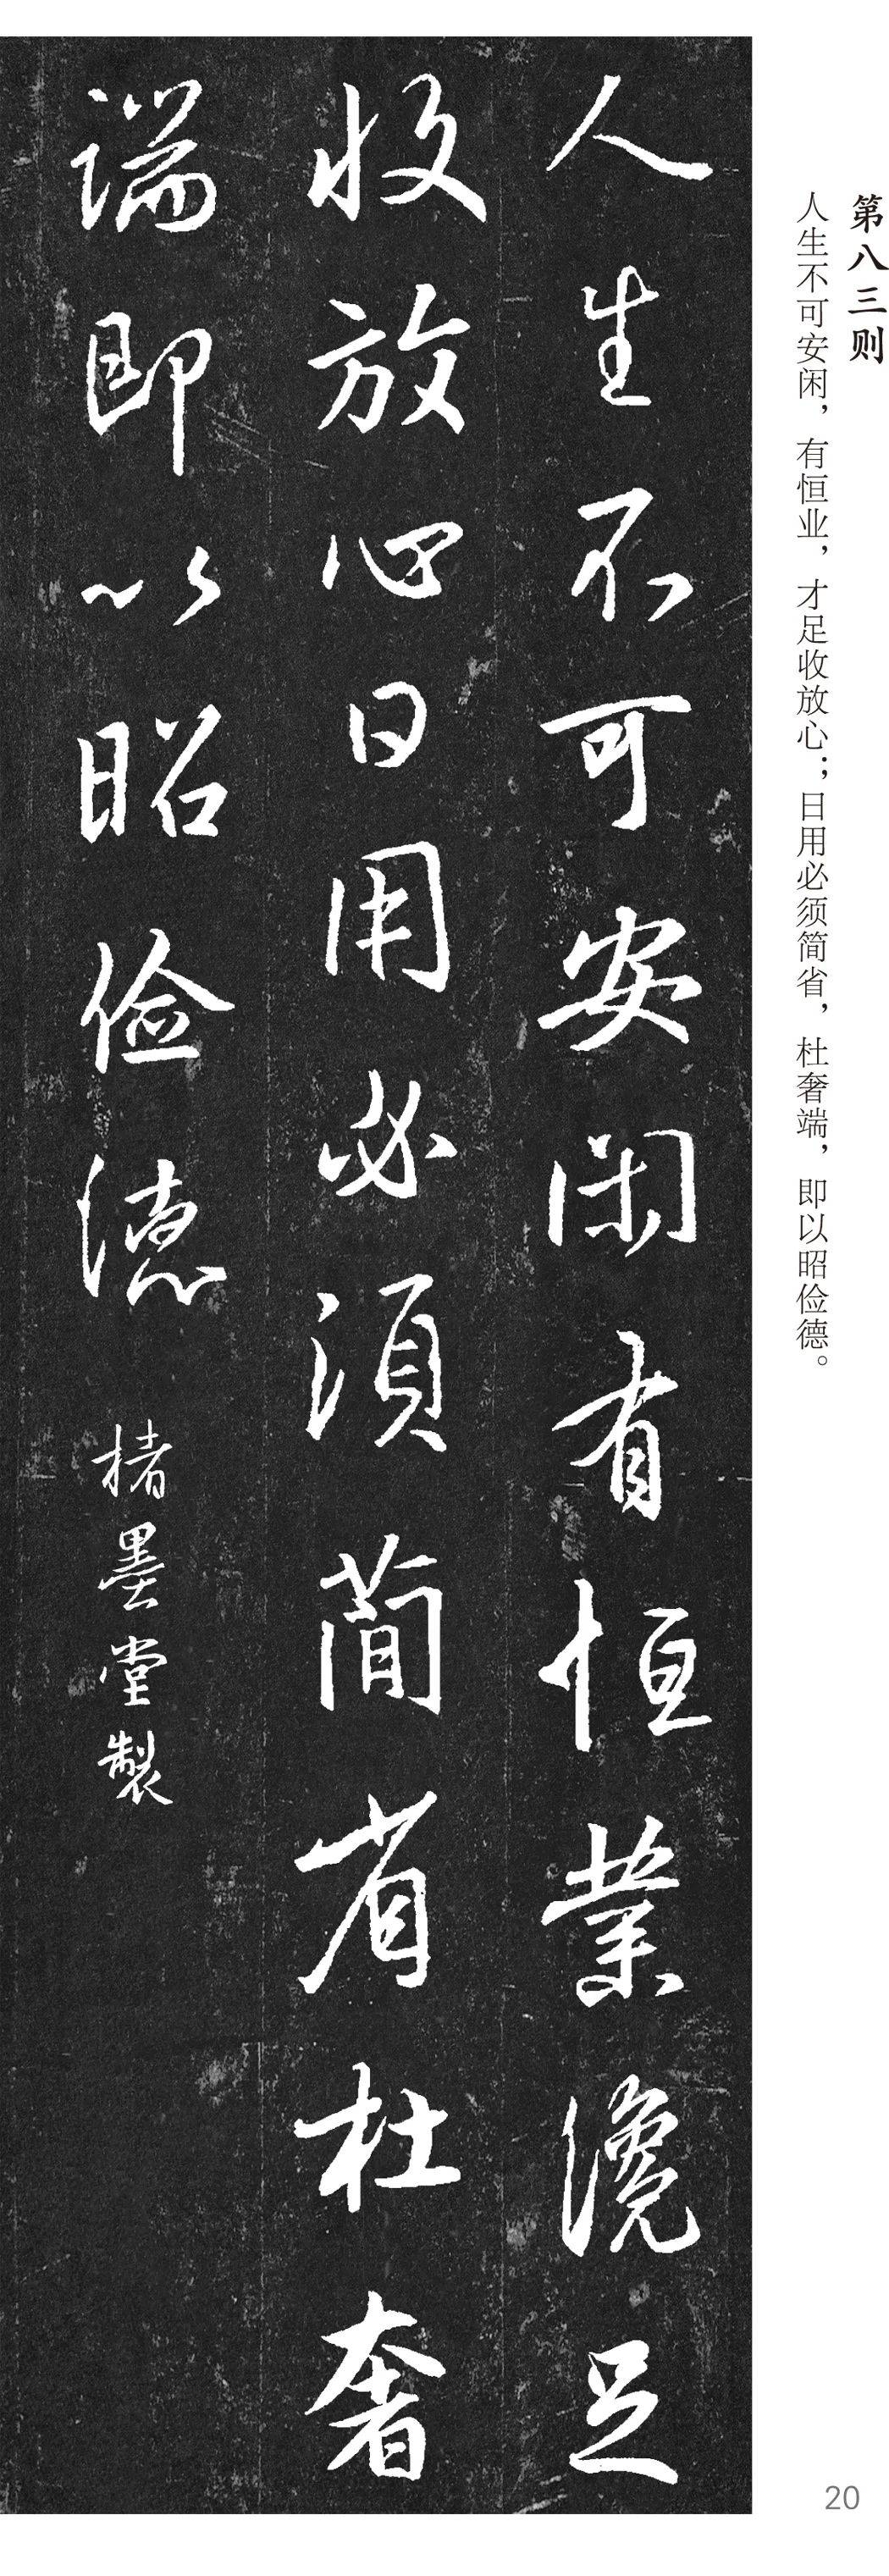 第八三则
人生不可安闲，有恒业，才足收放心；日用必须简省，杜奢端，即以昭俭德。
人生不可安闲有恒業纔足
收放心日用必須簡省杜奢
端即以昭俭德
楮墨堂製
20